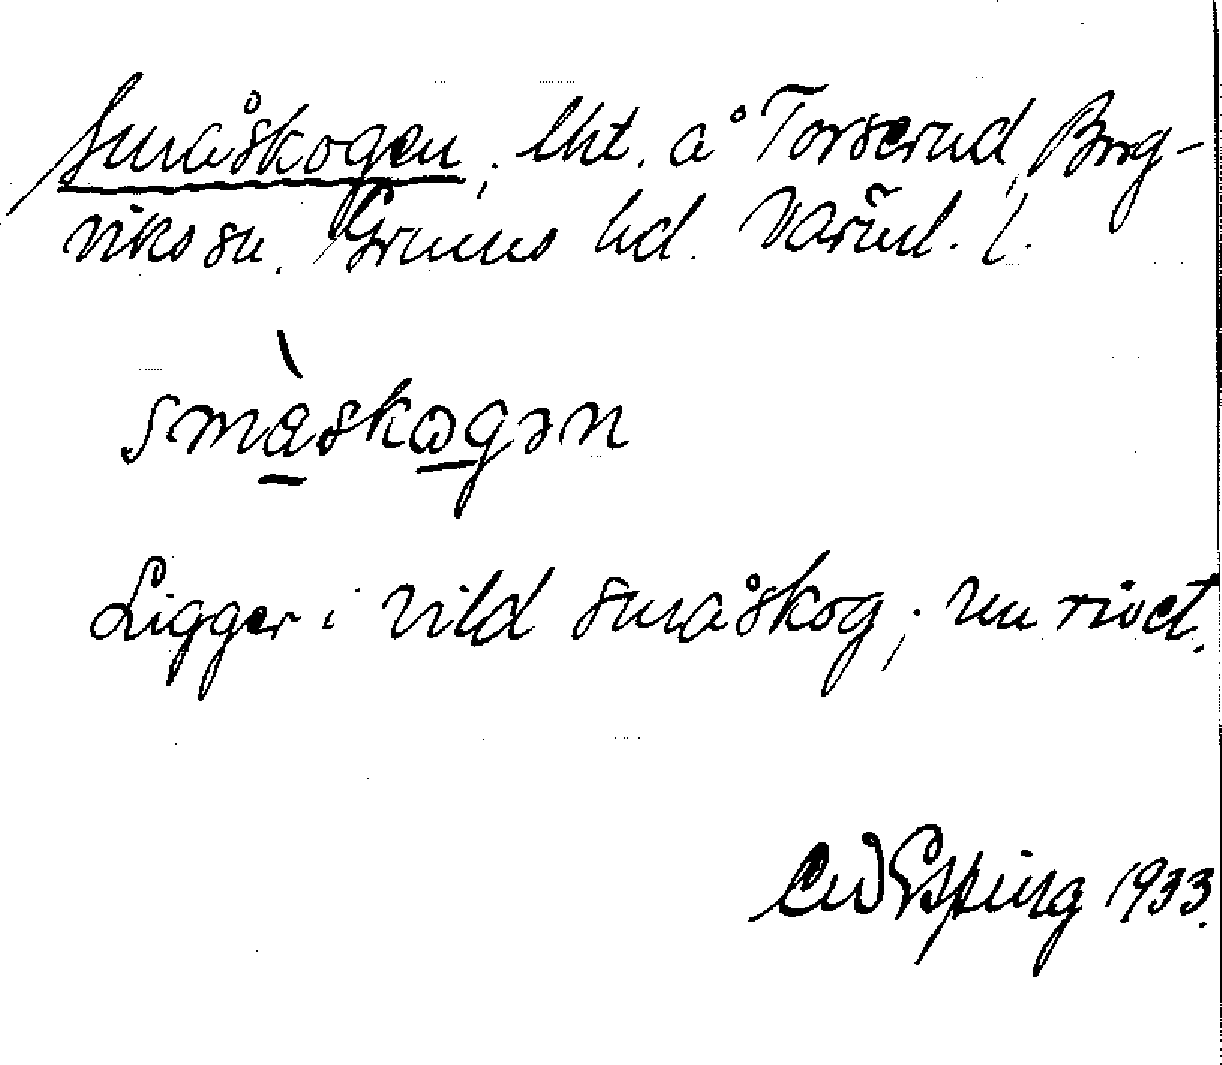 Småskogen, lht. å Torserud, Borg-
viks sn. Grums hd. Värml. l.
smàskogən
Ligger i vild småskog; nu rivet.
CW Esping 1933.